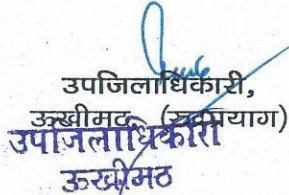 उपजिलाधिकारी,
ऊखीमठ (रुद्रप्रयाग)
उपजिलाधिकारी
ऊखीमठ